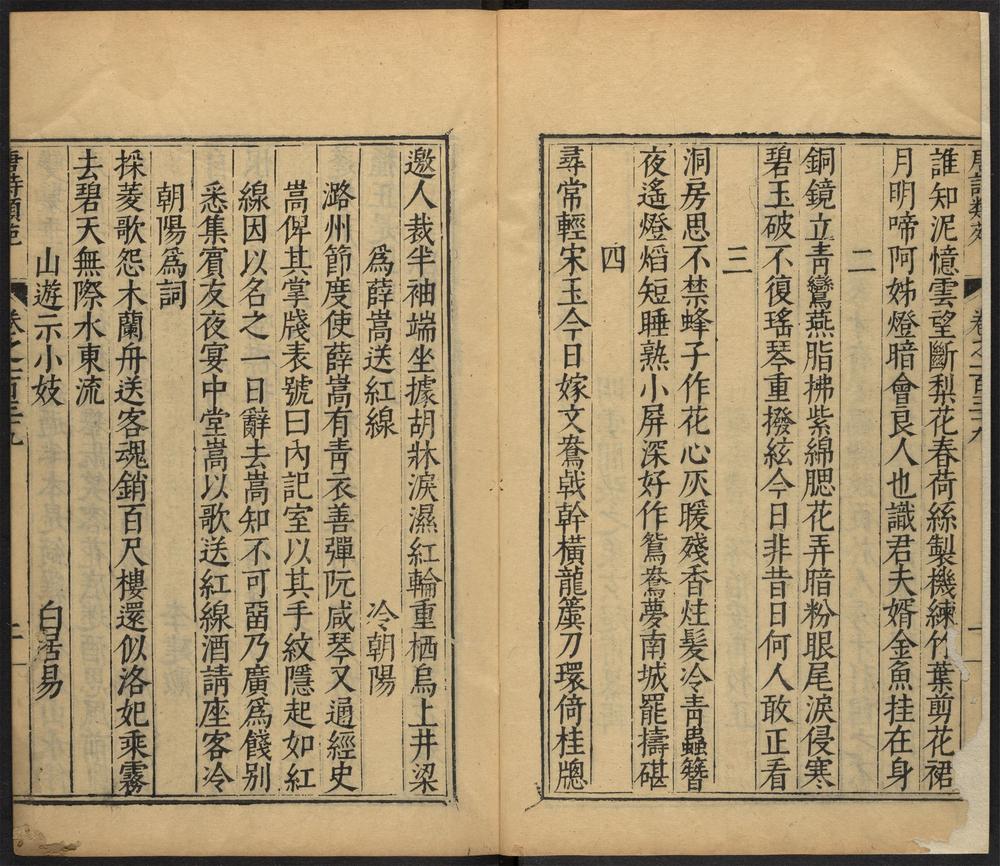 唐詩類苑 卷之一百三十九
誰知泥憶雲望斷梨花春荷絲製機練竹葉剪花裙
月明啼阿姊燈暗會良人也識君夫婿金魚挂在身
二
銅鏡立青鸞燕脂拂紫綿腮花弄暗粉眼尾淚侵寒
碧玉破不復瑤琴重撥絃今日非昔日何人敢正看
三
洞房思不禁蜂子作花心灰暖殘香炷髮冷青蟲簪
夜遙燈焰短睡熟小屏深好作鴛鴦夢南城罷擣碪
四
尋常輕宋玉今日嫁文鴦戟幹橫龍簴刀環倚桂牕
邀人裁半袖端坐據胡牀淚濕紅輪重栖烏上井梁
爲薛嵩送紅線 冷朝陽
潞州節度使薛嵩有青衣善彈阮咸琴又通經史
嵩俾其掌牋表號曰內記室以其手紋隱起如紅
線因以名之一日辭去嵩知不可畱乃廣爲餞別
悉集賓友夜宴中堂嵩以歌送紅線酒請座客冷
朝陽爲詞
採菱歌怨木蘭舟送客魂銷百尺樓還似洛妃乘霧
去碧天無際水東流
山遊示小妓 白居易
唐詩類苑 卷之一百三十九 二